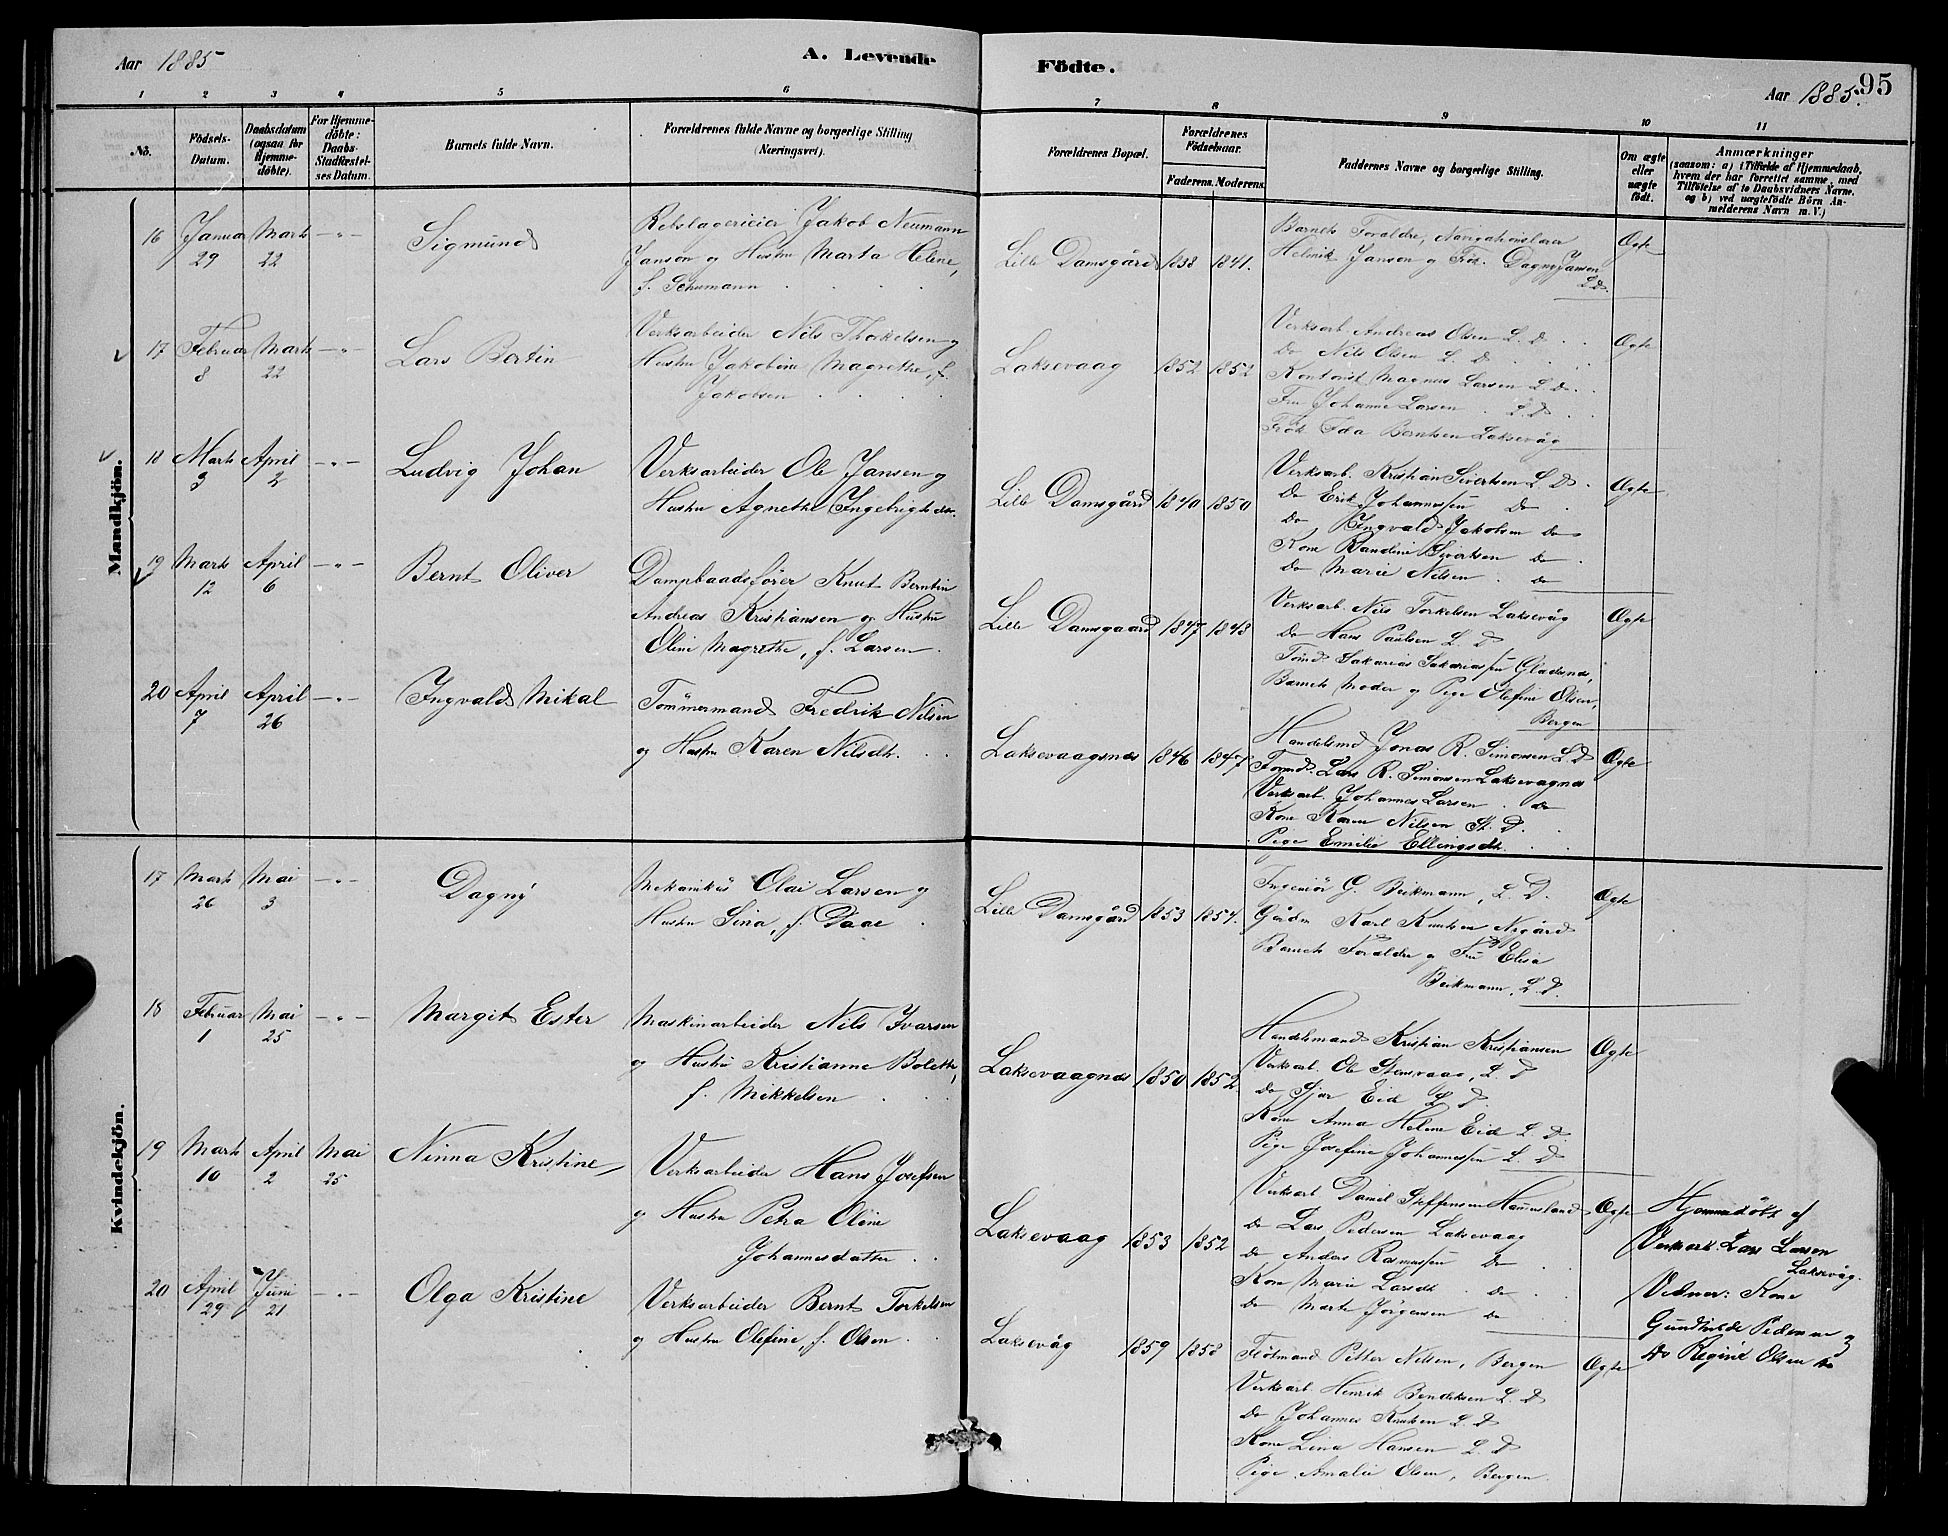 Aar 1885
A. Levende
Födte.
Aar 1885.
95
1 2 3 4 5 6 7 8 9 10 11
No.
Födsels-Datum.
Daabsdatum (ogsaa for Hjemmedöbte).
For Hjemmedöbte: Daabs-Stadfæstelses Datum.
Barnets fulde Navn.
Forældrenes fulde Navne og borgerlige Stilling (Næringsvei).
Forældrenes Bopæl.
Forældrenes Födselsaar.
Faderens. Moderens.
Faddernes Navne og borgerlige Stilling.
Om ægte eller uægte födt.
Anmærkninger
(saasom: a) i Tilfælde af Hjemmedaab,
hvem der har forrettet samme, med
Tilföielse af to Daabsvidners Navne.
og b) ved uægtefödte Börn An-
melderens Navn m. V.)
Mandkjön.
16 Januar 29 Marts 22 - " - Sigmund
Rebslagerieier Jakob Neumann
Janson og Hustru Marta Helene,
f. Schumann
Lille Damsgård 1838 1841.
Barnets Forældre, Navigationslærer
Helmik Janson og Frök. Dagny Janson
L. D.
Ægte
17 Februar 8 Marts 22 - " - Lars Bertin
Verksarbeider Nils Thorkelsen og
Hustru Jakobine Magrethe, f.
Jakobsen
Laksevaag 1852 1852
Verksarb. Andreas Olsen L. D.
Do Nils Olsen L. D
Kontorist Magnus Larsen L. D.
Fru Johanne Larsen L. D.
Frök. Ida Berntsen Laksevåg
Ægte
18 Marts 3 April 2 - " - Ludvig Johan
Verksarbeider Ole Jansen og
Hustru Agnethe Ingebrigtsdr.
Lille Damsgård 1840 1850
Verksarb. Kristian Sivertsen L. D.
Do Erik Johannessen Do
Do Ingvald Jakobsen Do
Kone Randine Sivertsen Do
Do Marie Nilsen Do
Ægte
19 Marts 12 April 6 - " - Bernt Oliver
Dampbaadsförer Knut Berntin
Andreas Kristiansen og Hustru
Oline Magrethe, f. Larsen.
Lille Damsgaard 1847 1848
Verksarb. Nils Torkelsen Laksevåg
Do Hans Paulsen L. D
Tömd. Sakarias Sakariassen
Barnets Moder og Pige Olefine Olsen,
Bergen
Ægte
20 April 7 April 26 - " - Ingvald Mikal
Tömmermand Fredrik Nilsen
og Hustru Karen Nilsdtr.
Laksevaagsnæs 1846 1847
Handelsmd Jonas R. Simonsen L D
Tömd. Lars R. Simonsen Laksevagnæs
Verksarb. Johannes Larsen do
Kone Karen Nilsen St. D.
Pige Emilie Ellingsdtr.
Ægte
Kvindekjön.
17 Marts 26 Mai 3 - " - Dagny
Mekanikus Olai Larsen og
Hustru Sina, f. Daae
Lille Damsgård 1853 1854.
Ingeniör G. Beikmann, L. D.
Gårdm Karl Knutsen Nygård
Barnets Forældre og Fru Elisa
Beikmann, L. D.
Ægte
18 Februar 1 Mai 25 - " - Margit Ester
Maskinarbeider Nils Ivarsen
og Hustru Kristianne Bolethe,
f. Mikkelsen
Laksevaagnæs 1850 1852
Handelsmand Kristian Kristiansen
Verksarb. Ole Stensvaag, L. D
do Sjur Eid L D.
Kone Anna Helene Eid L D.
Pige Josefine Johannessen L. D
Ægte
19 Marts 10 April 2 Mai 25 Ninna Kristine
Verksarbeider Hans Josefsen
og Hustru Petra Oline
Johannesdatter
Laksevaag 1853 1852
Verksarb. Daniel Steffensen Hammersland
do Lars Pedersen Laksevaag
do Anders Rasmussen do
Kone Marie Larsdtr. do
do Marte Jörgensen do
Ægte
Hjemmedöbt af
Verksarb. Lars Larsen
Laksevåg.
Vidner: Kone
Gundhilde Pedersen og
do Regine Olsen do
20 April 29 Juni 21 - " - Olga Kristine
Verksarbeider Bernt Torkelsen
og Hustru Olefine, f. Olsen.
Laksevåg 1859 1858
Petter Nilsen, Bergen
Verksarb. Henrik Bendiksen L. D
do Johannes Knutsen L. D
Kone Lina Hansen L. D
Pige Amalie Olsen, Bergen.
Ægte